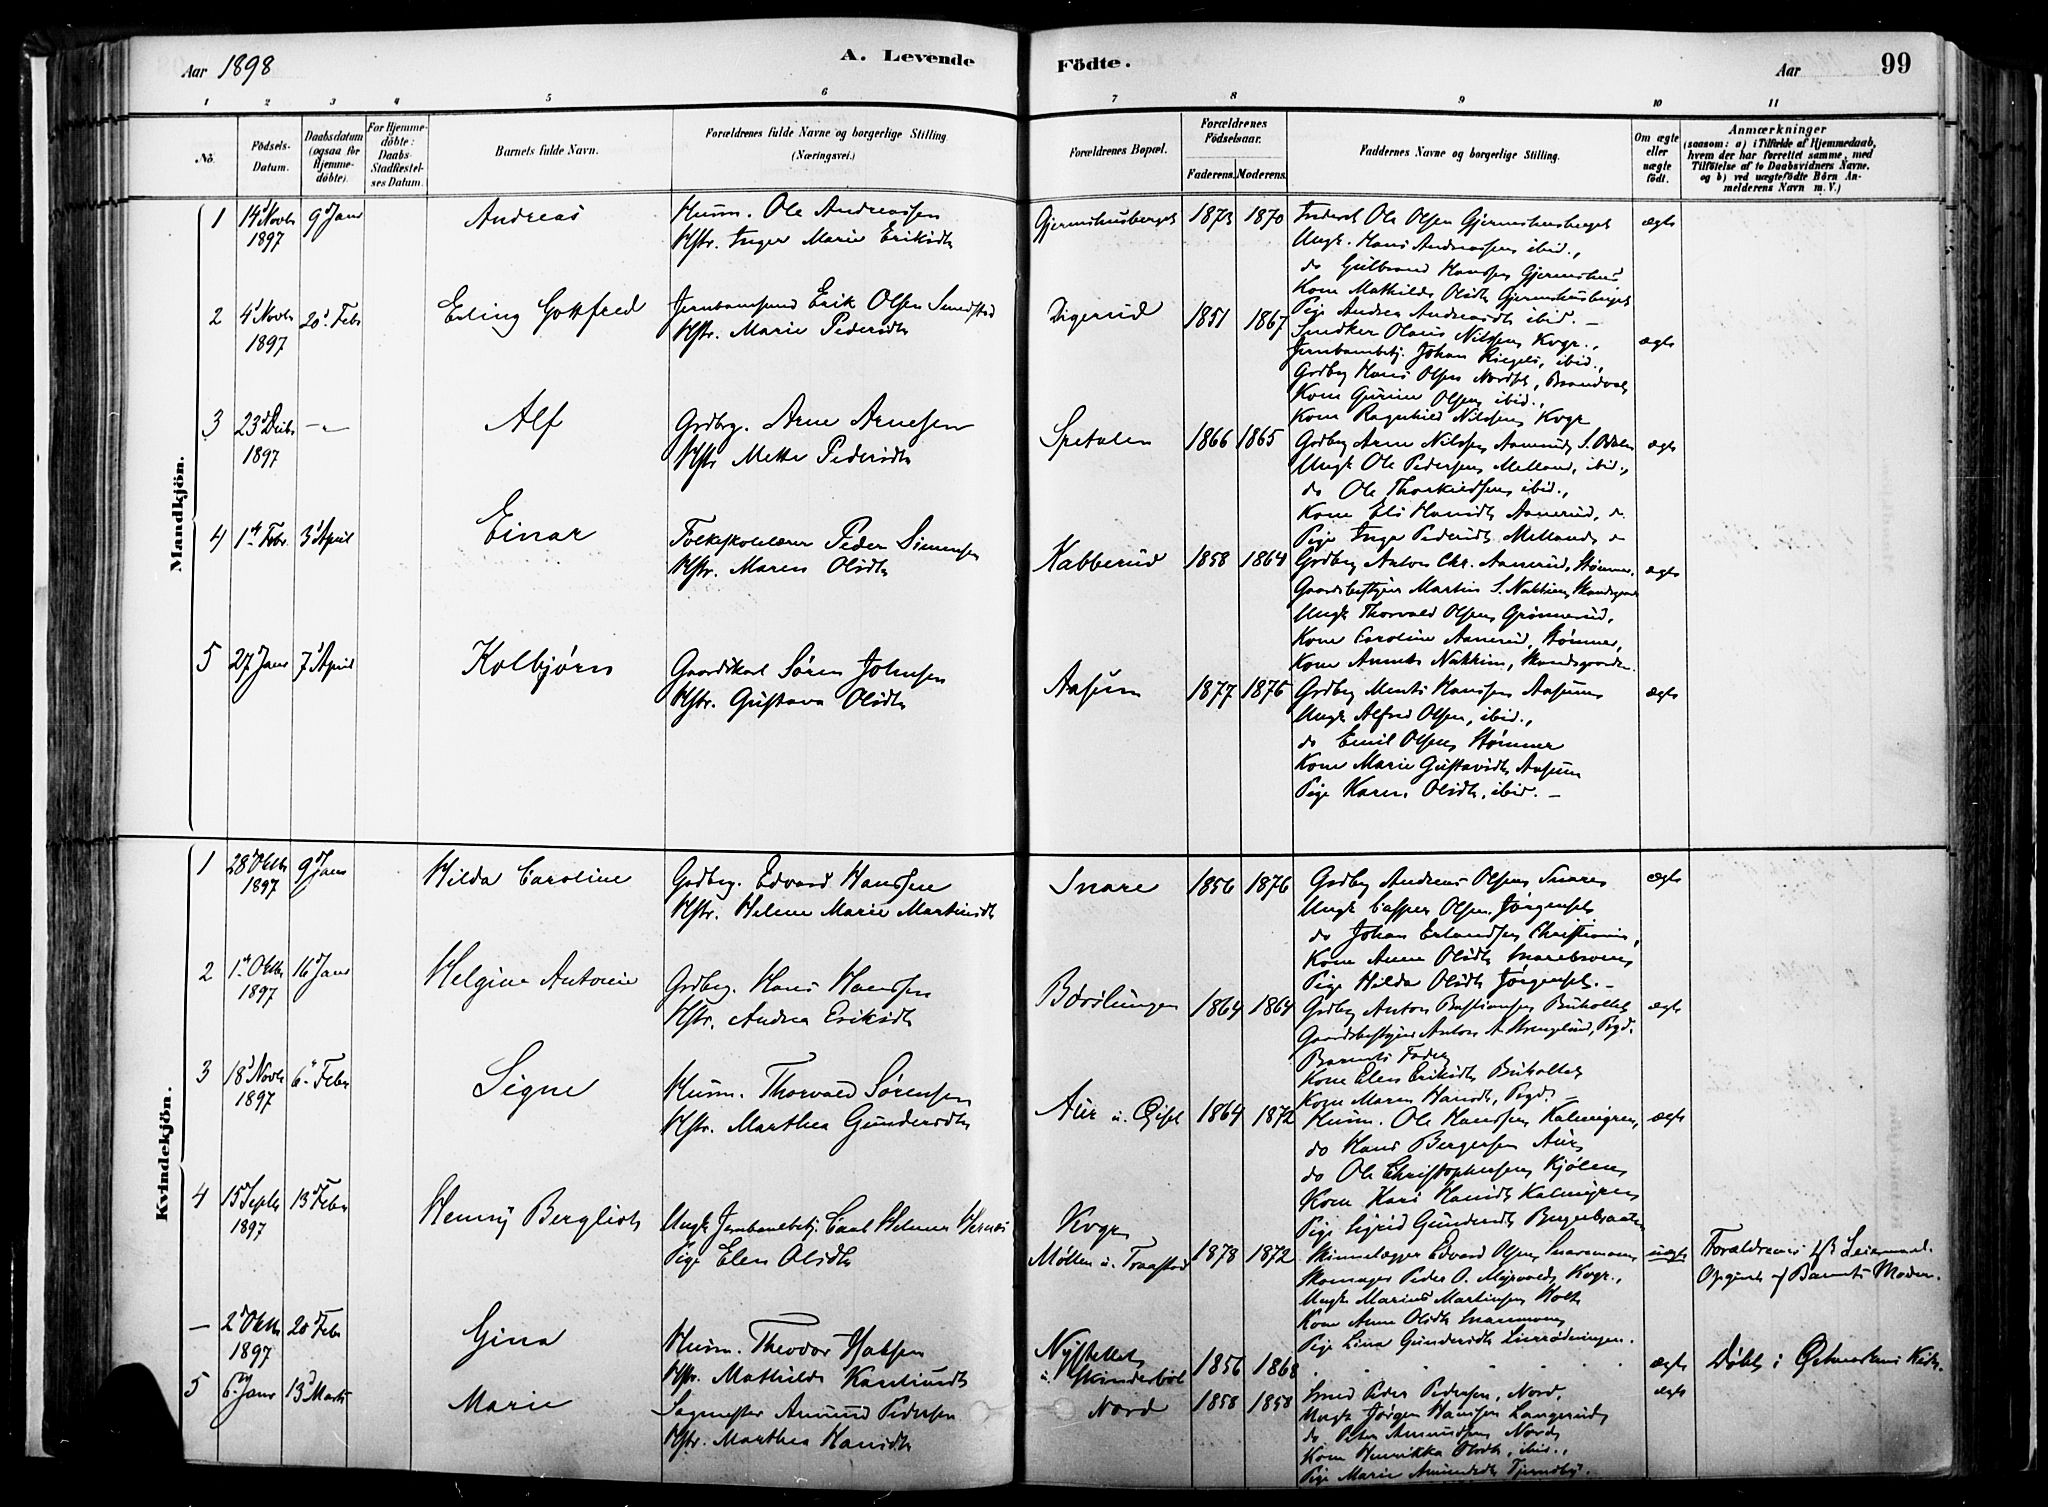 Aar 1898
A. Levende
Födte.
Aar
99
1 2 3 4 5 6 7 8 9 10 11
No.
Födsels-Datum.
Daabsdatum (ogsaa for Hjemme-döbte).
For Hjemme-döbte: Daabs-Stadfæstel-ses Datum.
Barnets fulde Navn.
Forældrenes fulde Navne og borgerlige Stilling (Næringsvei.)
Forældrenes Bopæl.
Forældrenes Födselsaar.
Faderens. Moderens.
Faddernes Navne og borgerlige Stilling.
Om ægte eller uægte födt.
Anmærkninger
(saasom: a) i Tilfælde af Hjemmedaab, hvem der har forrettet samme, med Tilföielse af to Daabsvidners Navne. og b) ved uægtefödte Börn An-melderens Navn m. V.)
Mandkjön.
1 14 Novb 1897 9 Janr Andreas
Husm. Ole Andreassen
Hstr. Inger Marie Eriksdtr
Gjermshusberget 1873 1870 ægte
Inderst Ole Olsen Gjermshusberget
Ungk. Hans Andreassen ibid.,
do Gulbrand Hanssen Gjermshus
Kone Mathilde Olsdtr Gjermshusberget
Pige Andrea Andreasdtr ibid. –
2 4 Novb 1897 20 Febr Erling Gottfred
Jernbanemand Erik Olsen Sundstad
Hstr. Marie Pedersdtr
Digerud 1851 1867 ægte
Snedker Olaus Nilssen Kvgr.,
Jernbanebetj. Johan Ringeli, ibid.,
Grdbrg Hans Olsen Nordset, Brandval
Kone Gurine Olsen ibid.,
Kone Ragnhild Nilssen Kvgr
3 23 Decbr 1897 – " – Alf
Grdbrg. Arne Arnesen
Hstr Mette Pedersdtr
Spetalen 1866 1865 ægte
Grdbrg Arne Nilssen Aamerud S. Odalen
Ungk Ole Pedersen Melland, ibid.,
do Ole Thorkildsen ibid.,
Kone Eli Hansdtr Aanerud,
Pige Inge Pedersdtr Melland
4 1ste Febr. 3 April Einar
Folkeskolelærer Peder Simensen
Hstr. Maren Olsdtr
Kabberud 1858 1864 ægte
Grdbrg Anton Chr. Aanerud, Stömner,
Gaardsbestyrer Martin S. Nakkim, Skandsgaarden
Ungk Thorvald Olsen Grönnerud,
Kone Caroline Aanerud, Stömner,
Kone Annette Nakkim, Skandsgaarden
5 27 Janr 7 April Kolbjörn
Gaardskarl Sören Johnsen
Hstr. Gustava Olsdtr
Aasum 1877 1875 ægte
Grdbrg Ments Hanssen Aasum
Ungk Alfred Olsen, ibid.,
do Emil Olsen Stömner
Kone Marie Gustavsdtr Aasum
Pige Karen Olsdtr, ibid. –
Kvindekjön.
1 28 Oktb 1897 9 Janr Hilda Caroline
Grdbrg. Edvard Hanssen
Hstr. Helene Marie Martinsdtr
Snare 1856 1876 ægte
Grdbrg Andreas Olsen Snare
Ungk Casper Olsen Jörgenset
do Johan Erlandsen Christiania,
Kone Anne Olsdtr
Pige Hilda Olsdtr Jörgenset. –
2 1ste Oktb 1897 16 Janr Helgine Antonie
Grdbrg. Hans Hanssen
Hstr. Andrea Eriksdtr
Börslungen 1864 1864 ægte
Grdbrg Anton Bastiansen Buholtet
Gaardsbestyrer Anton A. Strengelsrud, Bygd.
Barnets Fader
Kone Elen Eriksdtr Buholtet
Kone Maren Hansdtr, Bygd. –
3 18 Novb 1897 6 Febr Signe
Husm. Thorvald Sörensen
Hstr. Marthea Gundersdtr
Aur u. Öiset 1864 1872 ægte
Husm. Ole Hanssen Kalmigren,
do Hans Bergersen Aur
do Ole Christophersen Kjölen
Kone Kari Hansdtr Kalmigren
Pige Sigrid Gundersdtr Bergerbraaten
4 15 Septb 1897 13 Febr Henny Bergliot
Ungk Jernbanebetj. Carl Helmer Hernes
Pige Elen Olsdtr
Kvgr
Möllen u. Traastad 1878 1872 uægte
Skindlægger Edvard Olsen Snaremoen
Skomager Peder O. Myrvold Kvgr.,
Ungk Marius Martinsen Holt
Kone Anne Olsdtr Snaremoen
Pige Lina Gundersdtr Lierrödningen.
Forældrenes 1ste Leiermaal.
Opgivet af Barnets Moder.
– 2 Oktb 1897 20 Febr Gina
Husm. Theodor Jakobsen
Hstr. Mathilde Karlsdtr
Nystellet u. Skinderböl 1856 1868 ægte
Döbt i Östmarkens Kirke.
5 6 Janr 13 Marts Marie
Sagmester Amund Pedersen
Hstr. Marthea Hansdtr
Nord 1858 1858 ægte
Smed Peder Pedersen, Nord,
Ungk Jörgen Hanssen Langerud
do Peter Amundsen Nord
Kone Henrikka Olsdtr, ibid.,
Pige Marie Amundsdtr Tjernsby.